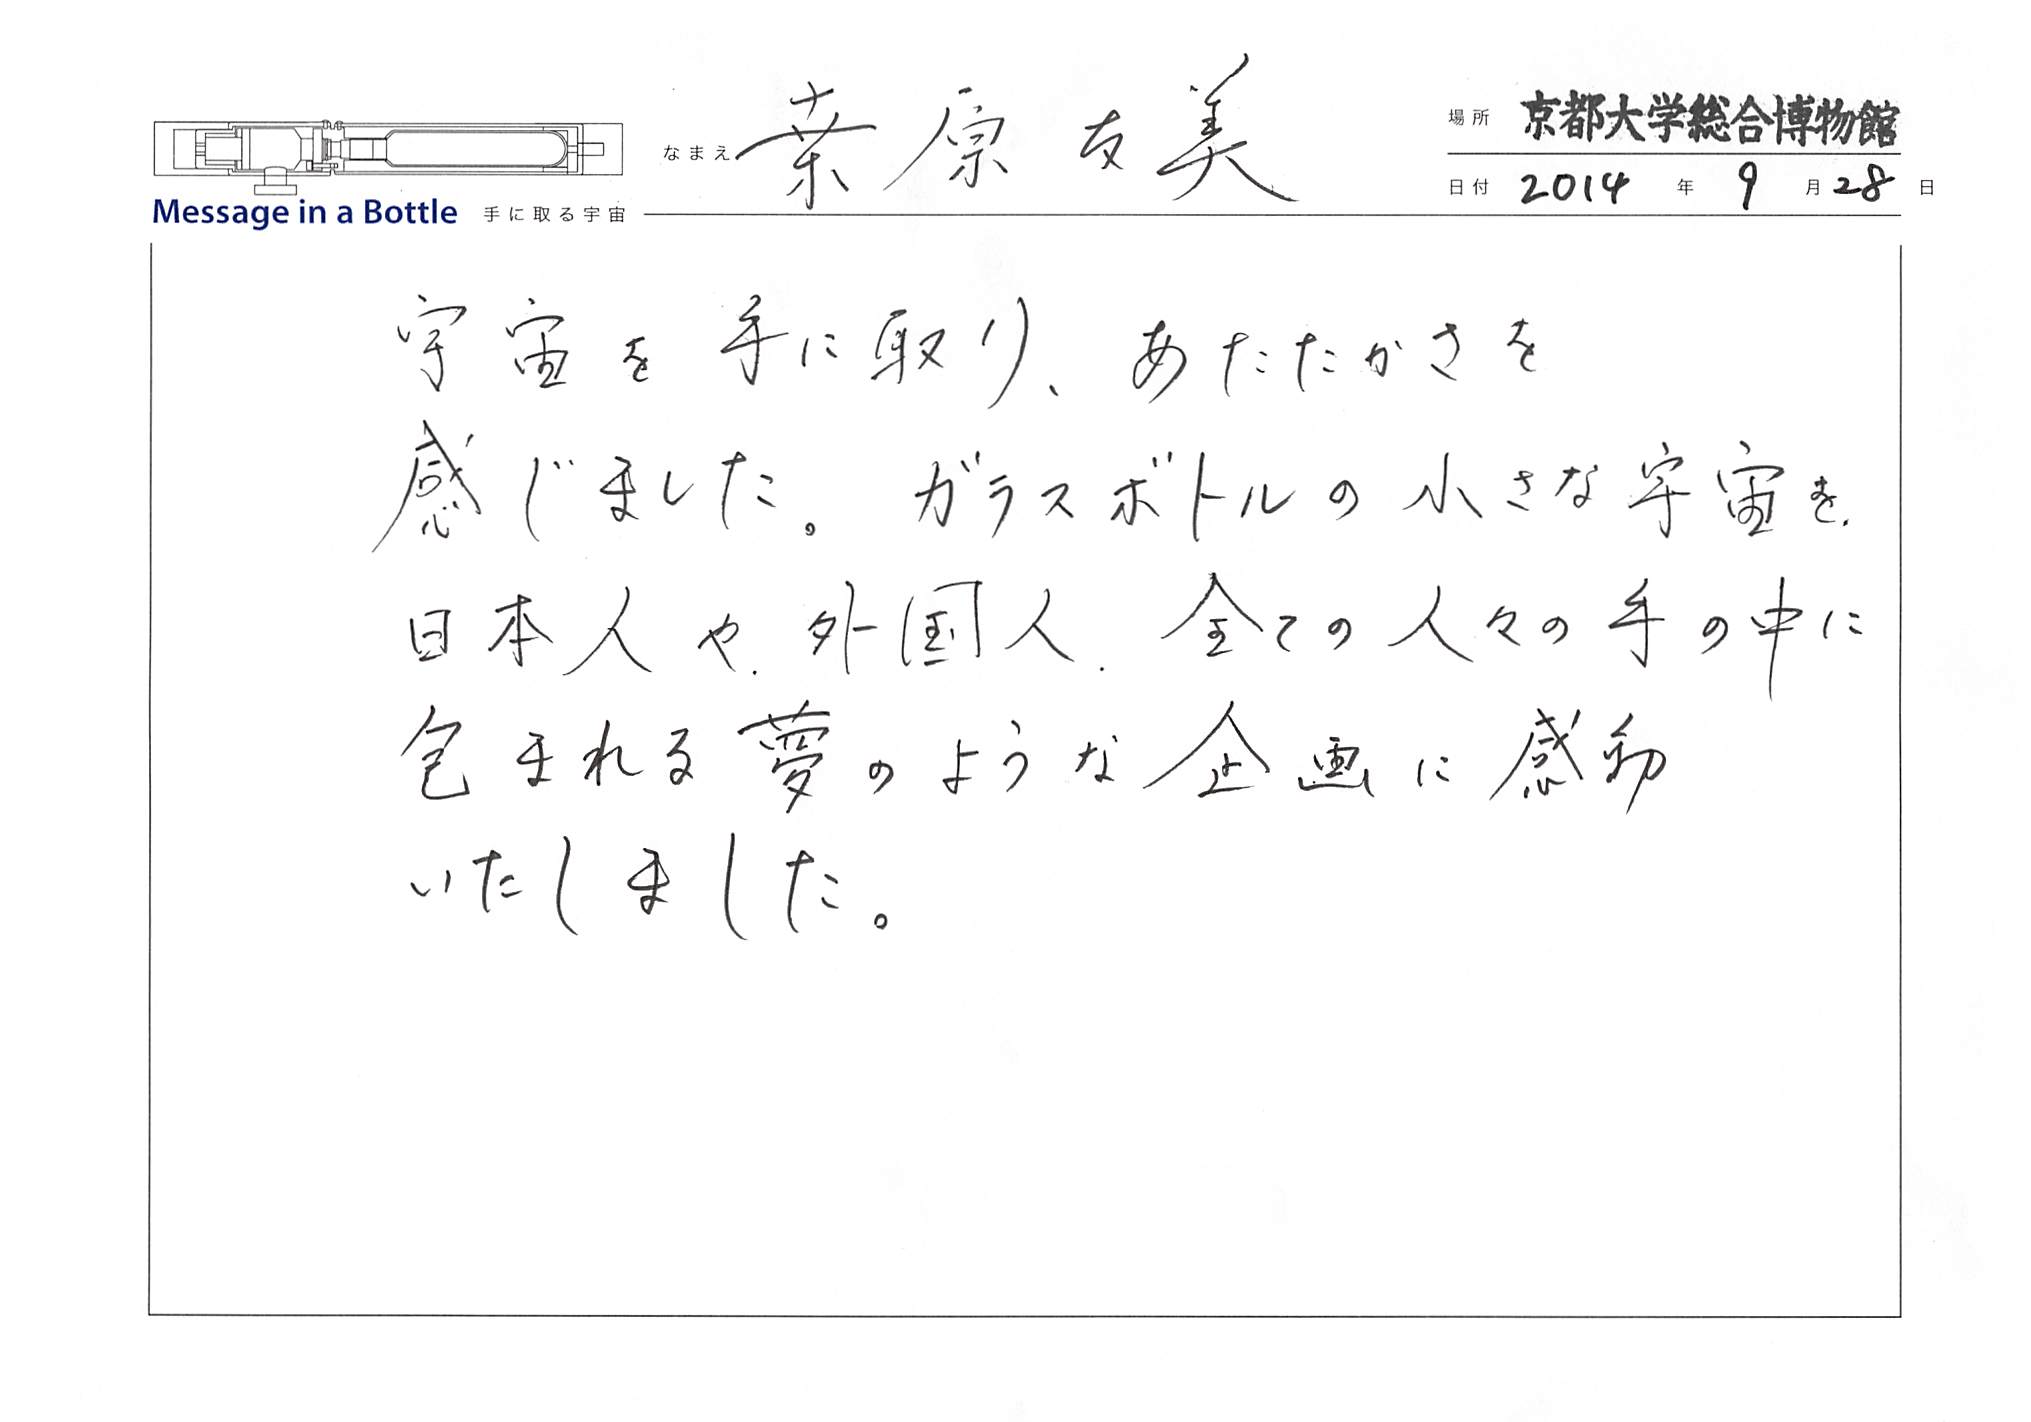 Message in a Bottle 手に取る宇宙
なまえ 原 友美
場所 京都大学総合博物館
日付 2014 年 9 月 28 日
宇宙を手に取り、あたたかさを
感じました。ガラスボトルの小さな宇宙を、
日本人や、外国人、全ての人々の手の中に
包まれる夢のような企画に感動
いたしました。